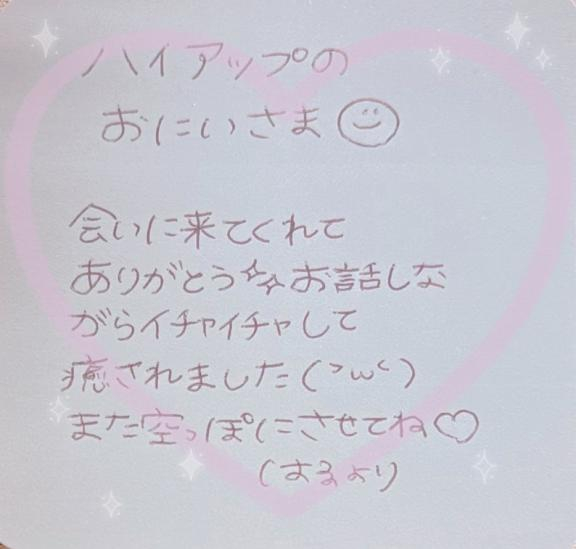 ハイアップの
おにいさま
会いに来てくれて
ありがとう✨お話しな
がらイチャイチャして
癒されました(˃ω˂)
また空っぽにさせてね♡
はるより